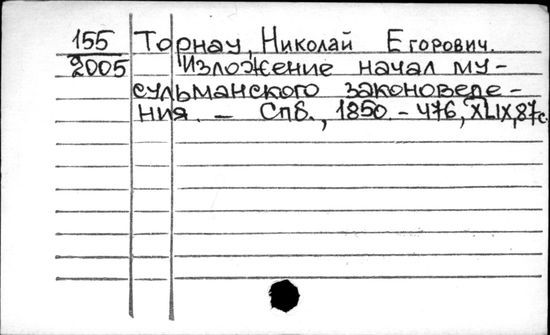 155 Торнау, Николай Егорович.
2005 Изложение начал му-
сульманского законоведе-
ния. — Спб., 1850 - 476, XLIX, 87с.